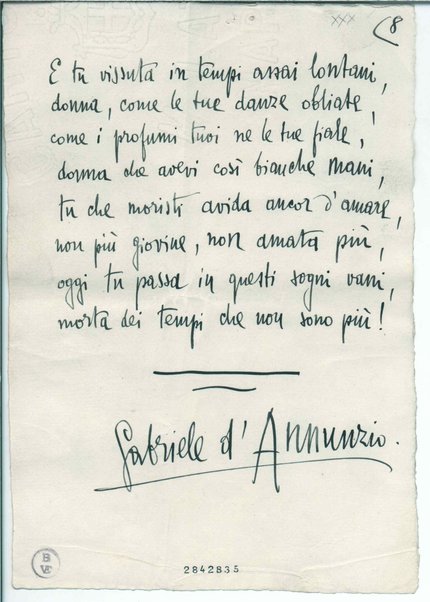 xxx
(8
E tu vissuta in tempi assai lontani,
donna, come le tue danze obliate,
come i profumi tuoi ne le tue fiale,
donna che avevi così bianche mani,
tu che moristi avida ancor d'amare,
non più giovine, non amata più,
oggi tu passa in questi sogni vani,
morta dei tempi che non sono più!
Gabriele d'Annunzio.
B
VE
2842835